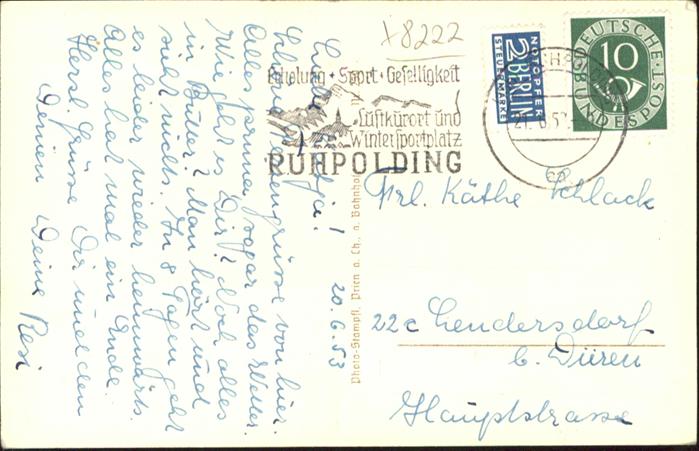 +8222
Erholung + Sport + Geselligkeit
Luftkurort und
Wintersportplatz
RUHPOLDING
NOTOPFER
2 BERLIN
STEUERMARKE
DEUTSCHE
10
BUNDESPOST
Frl. Käthe Schlack
22c Lendersdorf
b. Düren
Hauptstrasse
Photo-Stampfl, Prien a. Ch., a. Bahnhof
20.6.53
Liebe
von hier.
Alles prima, sogar das Wetter.
Wie geht es Dir? Noch alles
in Butter? Man hört und
sieht nichts. In 8 Tagen geht
es leider wieder heimwärts.
Alles hat mal ein Ende.
Herzl. Grüsse Dir und den
Deinen Deine Resi